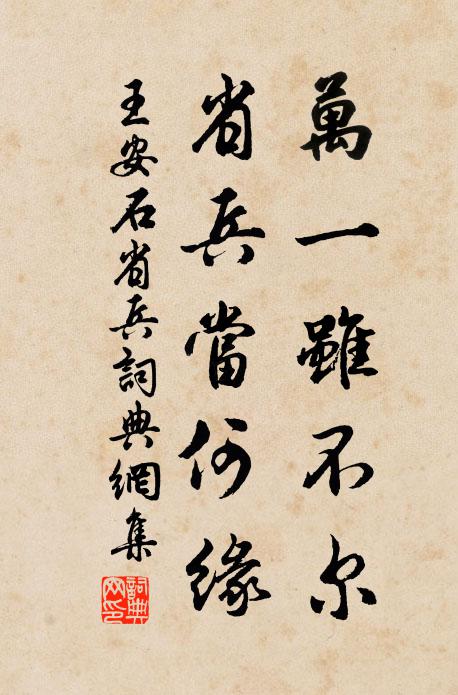 萬一雖不尔
省兵當何緣
王安石省兵詞典網集
詞典网印